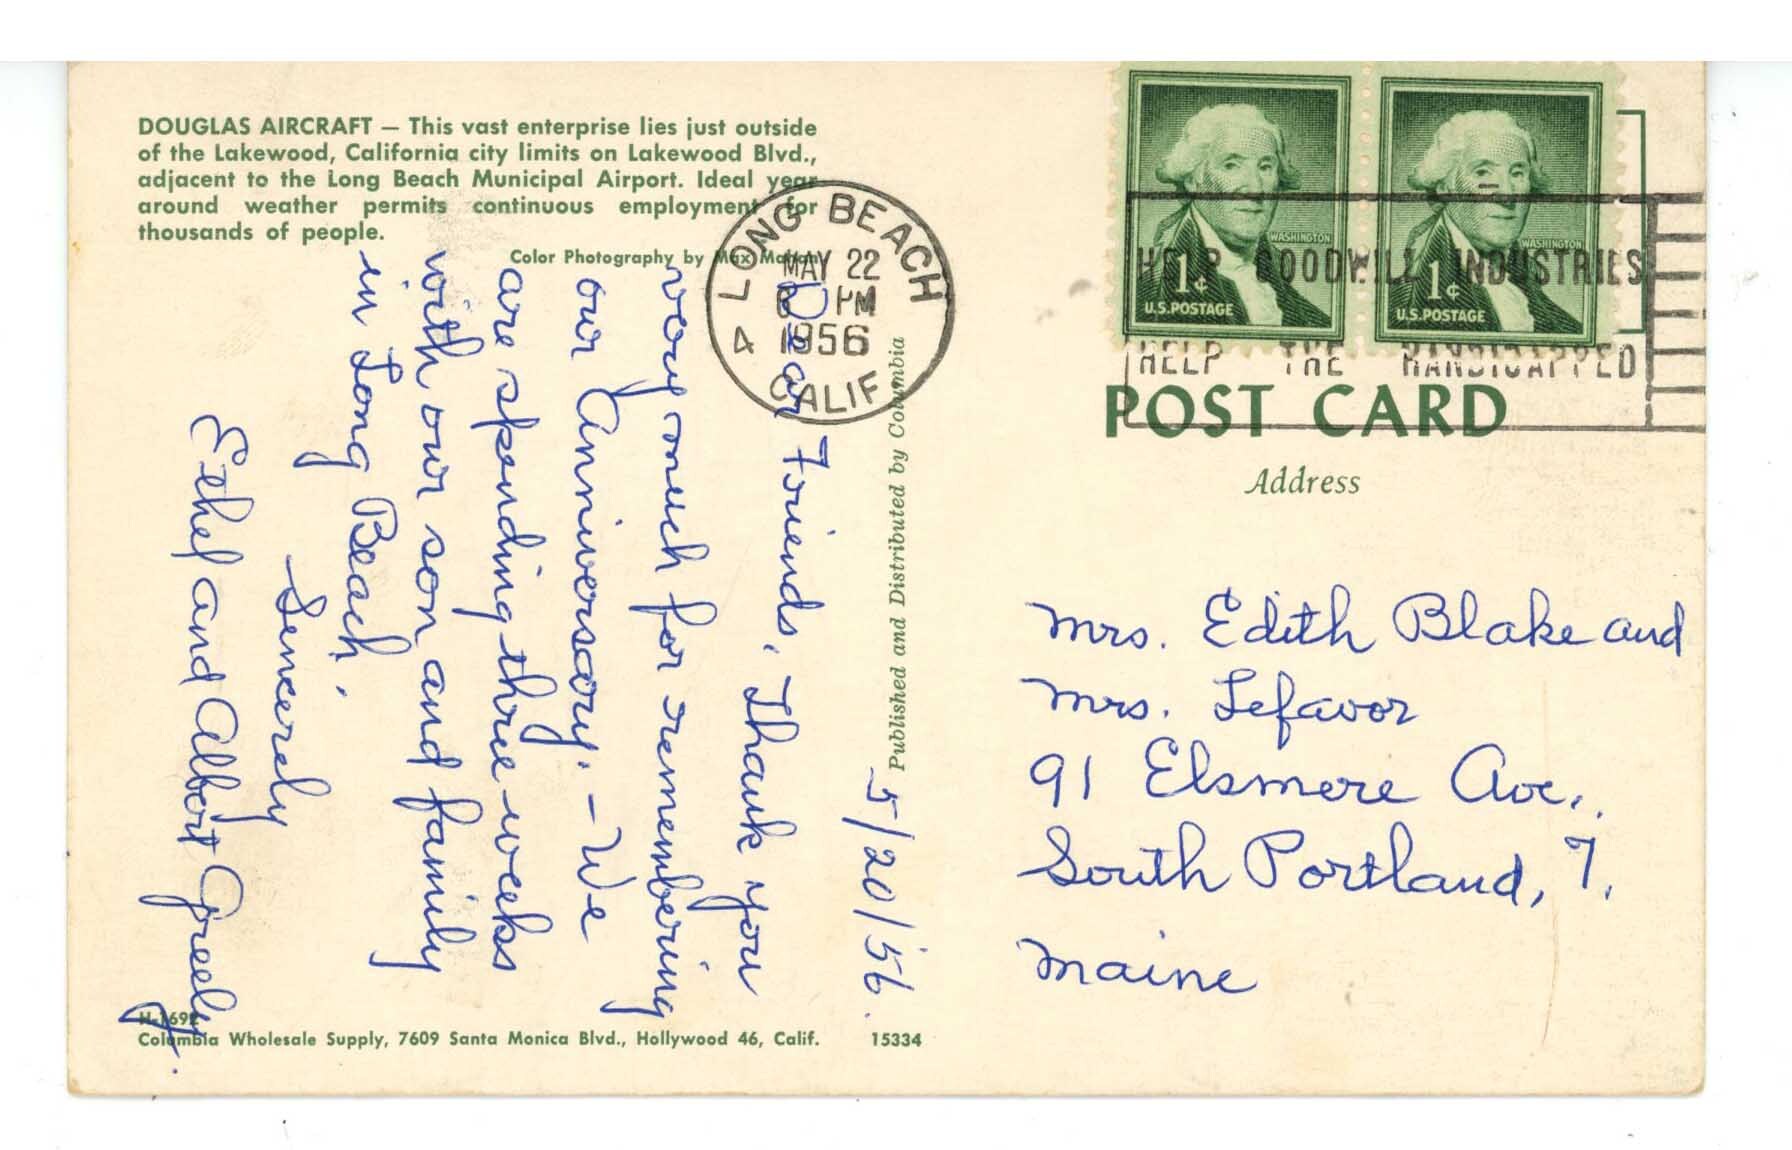 DOUGLAS AIRCRAFT — This vast enterprise lies just outside
of the Lakewood, California city limits on Lakewood Blvd.,
adjacent to the Long Beach Municipal Airport. Ideal year
around weather permits continuous employment for
thousands of people.
Color Photography by Max Mahan
LONG BEACH
MAY 22
PM
1956
CALIF
4
WASHINGTON
1¢
U.S. POSTAGE
WASHINGTON
1¢
U.S. POSTAGE
HELP GOODWILL INDUSTRIES
HELP THE HANDICAPPED
POST CARD
Address
Published and Distributed by Columbia
5/20/'56.
Dear Friends, Thank you
very much for remembering
our Anniversary. - We
are spending three weeks
with our son and family
in Long Beach.
Sincerely
Ethel and Albert Greely.
Mrs. Edith Blake and
Mrs. Lefavor
91 Elsmere Ave.,
South Portland, 7,
Maine
H-1692
Columbia Wholesale Supply, 7609 Santa Monica Blvd., Hollywood 46, Calif.
15334